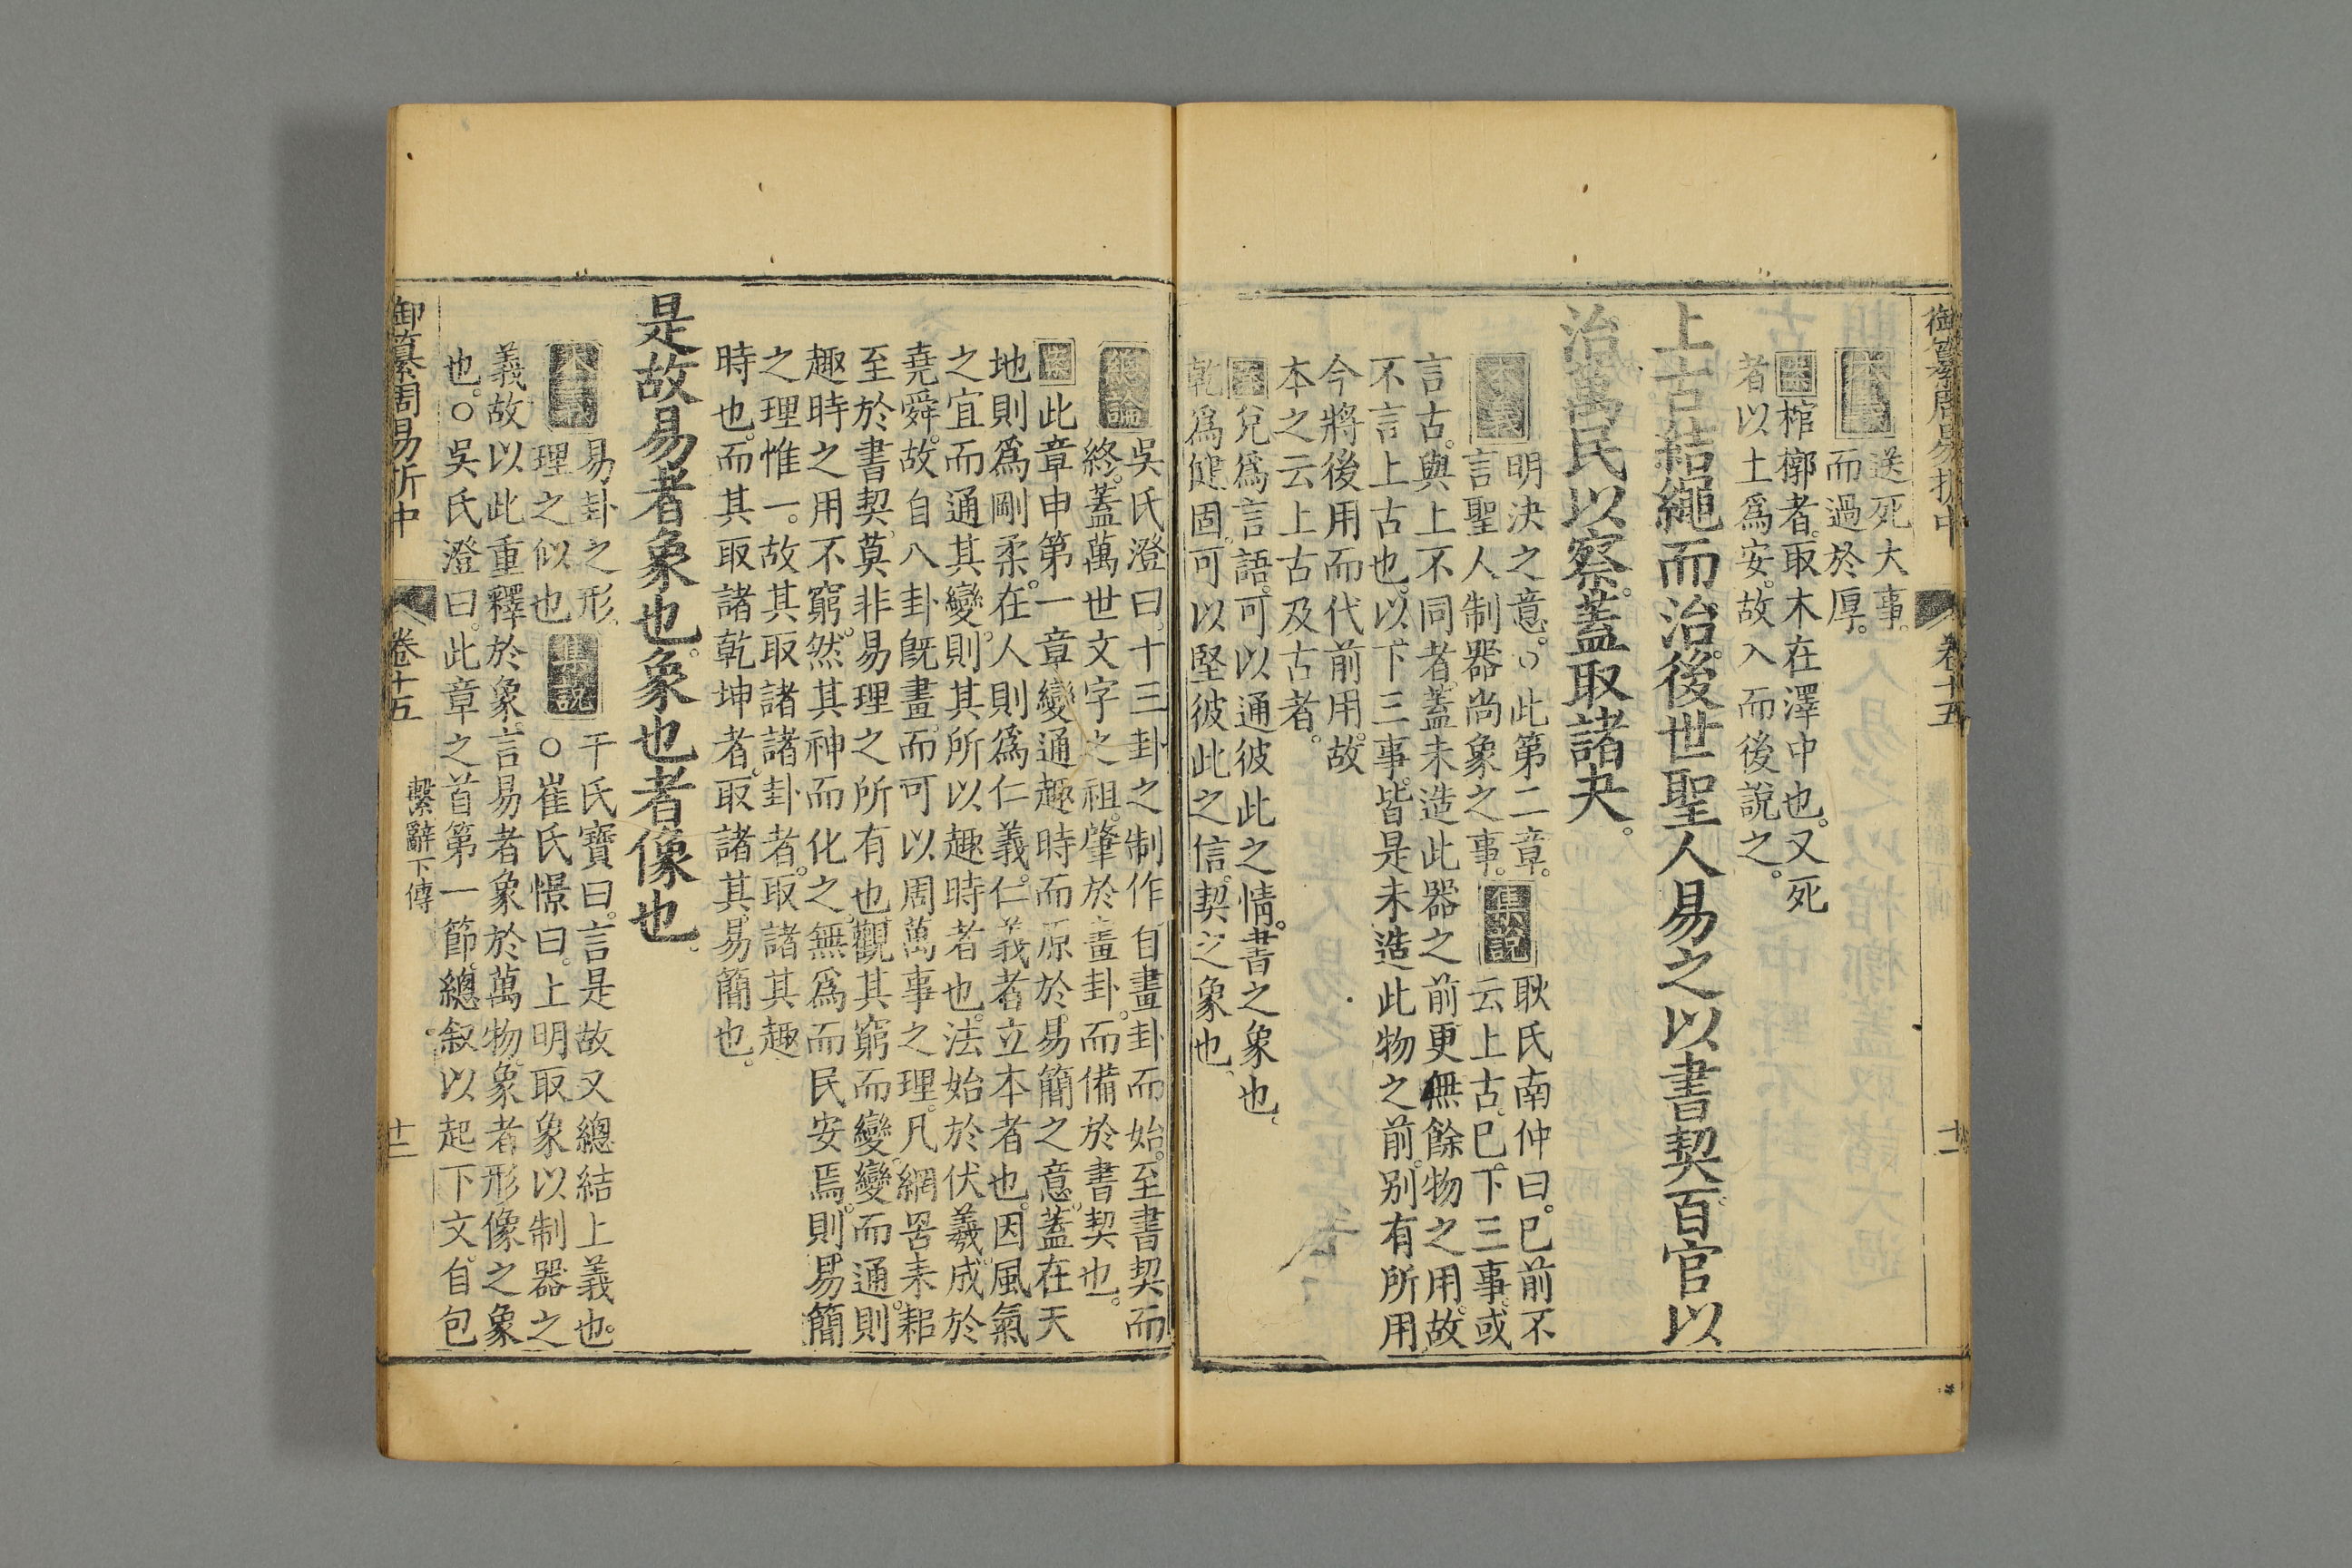 御纂周易折中
卷十五
十一
本義
送死大事
而過於厚。
案
棺槨者。取木在澤中也。又死
者以土爲安。故入而後說之。
上古結繩而治。後世聖人易之以書契。百官以
治。萬民以察。蓋取諸夬。
本義
明決之意。○此第二章。
言聖人制器尚象之事。
集說
耿氏南仲曰。已前不
云上古。已下三事。或
言古。與上不同者。蓋未造此器之前。更無餘物之用。故
不言上古也。以下三事。皆是未造此物之前。別有所用
今將後用而代前用。故
本之云上古及古者。
案
兌爲言語。可以通彼此之情。書之象也。
乾爲健固。可以堅彼此之信。契之象也。
總論
吳氏澄曰。十三卦之制作。自畫卦而始。至書契而
終。蓋萬世文字之祖。肇於畫卦。而備於書契也。
案
此章申第一章變通趣時而原於易簡之意。蓋在天
地則爲剛柔。在人則爲仁義。仁義者立本者也。因風氣
之宜而通其變。則其所以趣時者也。法始於伏羲。成於
堯舜。故自八卦旣畫。而可以周萬事之理。凡網罟耒耜
至於書契。莫非易理之所有也。觀其窮而變。變而通。則
趣時之用不窮。然其神而化之。無爲而民安焉。則易簡
之理惟一。故其取諸諸卦者。取諸其趣
時也。而其取諸乾坤者。取諸其易簡也。
是故易者象也。象也者像也。
本義
易卦之形
理之似也
集說
干氏寶曰。言是故又總結上義也。
○崔氏憬曰。上明取象以制器之
義。故以此重釋於象。言易者象於萬物。象者形像之象
也。○吳氏澄曰。此章之首第一節。總叙以起下文。自包
御纂周易折中
卷十五
繫辭下傳
十二